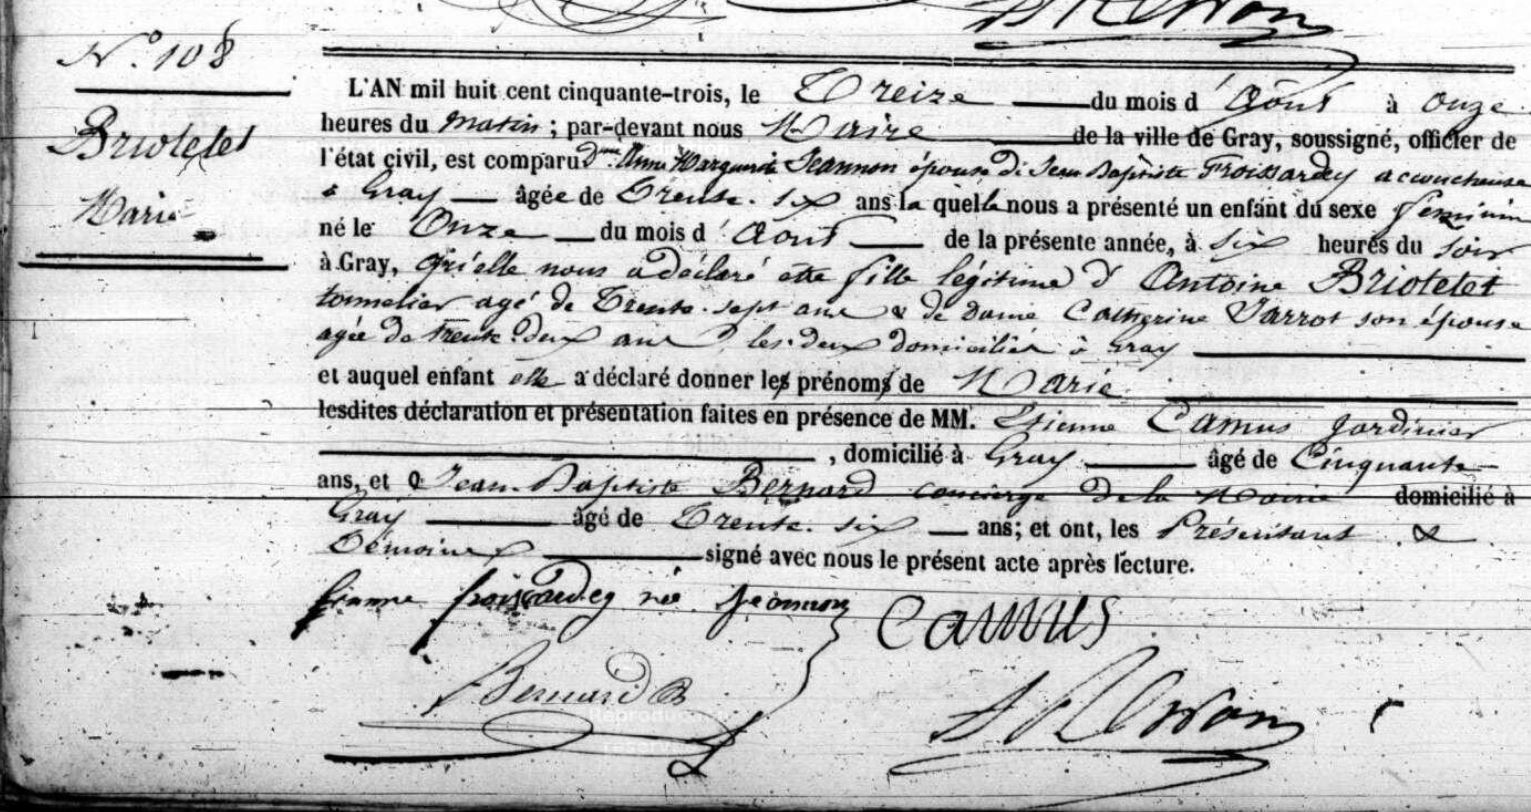 N.° 108
Briotelet
Marie
L'AN mil huit cent cinquante-trois, le Treize du mois d'Août à onze
heures du matin ; par-devant nous Maire de la ville de Gray, soussigné, officier de
l'état civil, est comparu dme Anne Marguerite Jeannon épouse de Jean Baptiste Froissardey accoucheuse
à Gray âgée de Trente-six ans laquelle nous a présenté un enfant du sexe féminin
né le Onze du mois d'Août de la présente année, à six heures du soir
à Gray, qu'elle nous a déclaré être fille légitime d'Antoine Briotelet
tonnelier agé de Trente-sept ans & de Dame Catherine Varrot son épouse
agée de trente-deux ans les deux domiciliés à Gray
et auquel enfant elle a déclaré donner les prénoms de Marie
lesdites déclaration et présentation faites en présence de MM. Etienne Camus Jardinier
, domicilié à Gray âgé de Cinquante
ans, et Jean-Baptiste Bernard concierge de la Mairie domicilié à
Gray âgé de Trente-six ans; et ont, les Présentant &
Témoins signé avec nous le présent acte après lecture.
femme froissardey née jeannon Camus
Bernard B